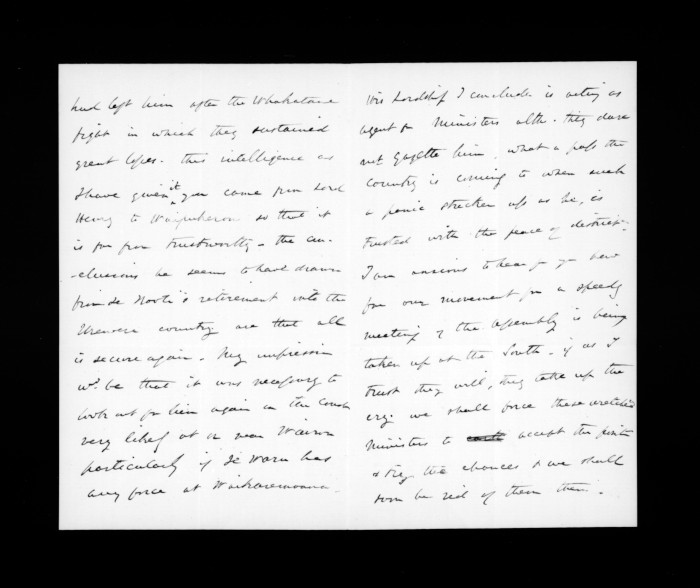 had left him after the Whakatane
fight in which they sustained
great losses. This intelligence as
I have given it you came from Lord
Henry to so that it
is far from trustworthy - the con-
-clusions he seems to have drawn
from Te Kooti's retirement into the
Urewera country are that all
is secure again. My impression
wd be that it was necessary to
look out for him again on this Coast
very likely at or near Wairoa
particularly if Te Waru has
any force at Waikaremoana.
His Lordship I conclude is acting as
agent for Ministers altho. they dare
not Gazette him. What a pass the
Country is coming to when such
a panic stricken as he, is
trusted with the peace of districts.
I am anxious to hear from you how
far our movement for a speedy
meeting of the Assembly is being
taken up at the South. if as I
trust they will, they take up the
cry. we shall force these wretched
Ministers to accept the
& try the chances & we shall
soon be rid of them then.